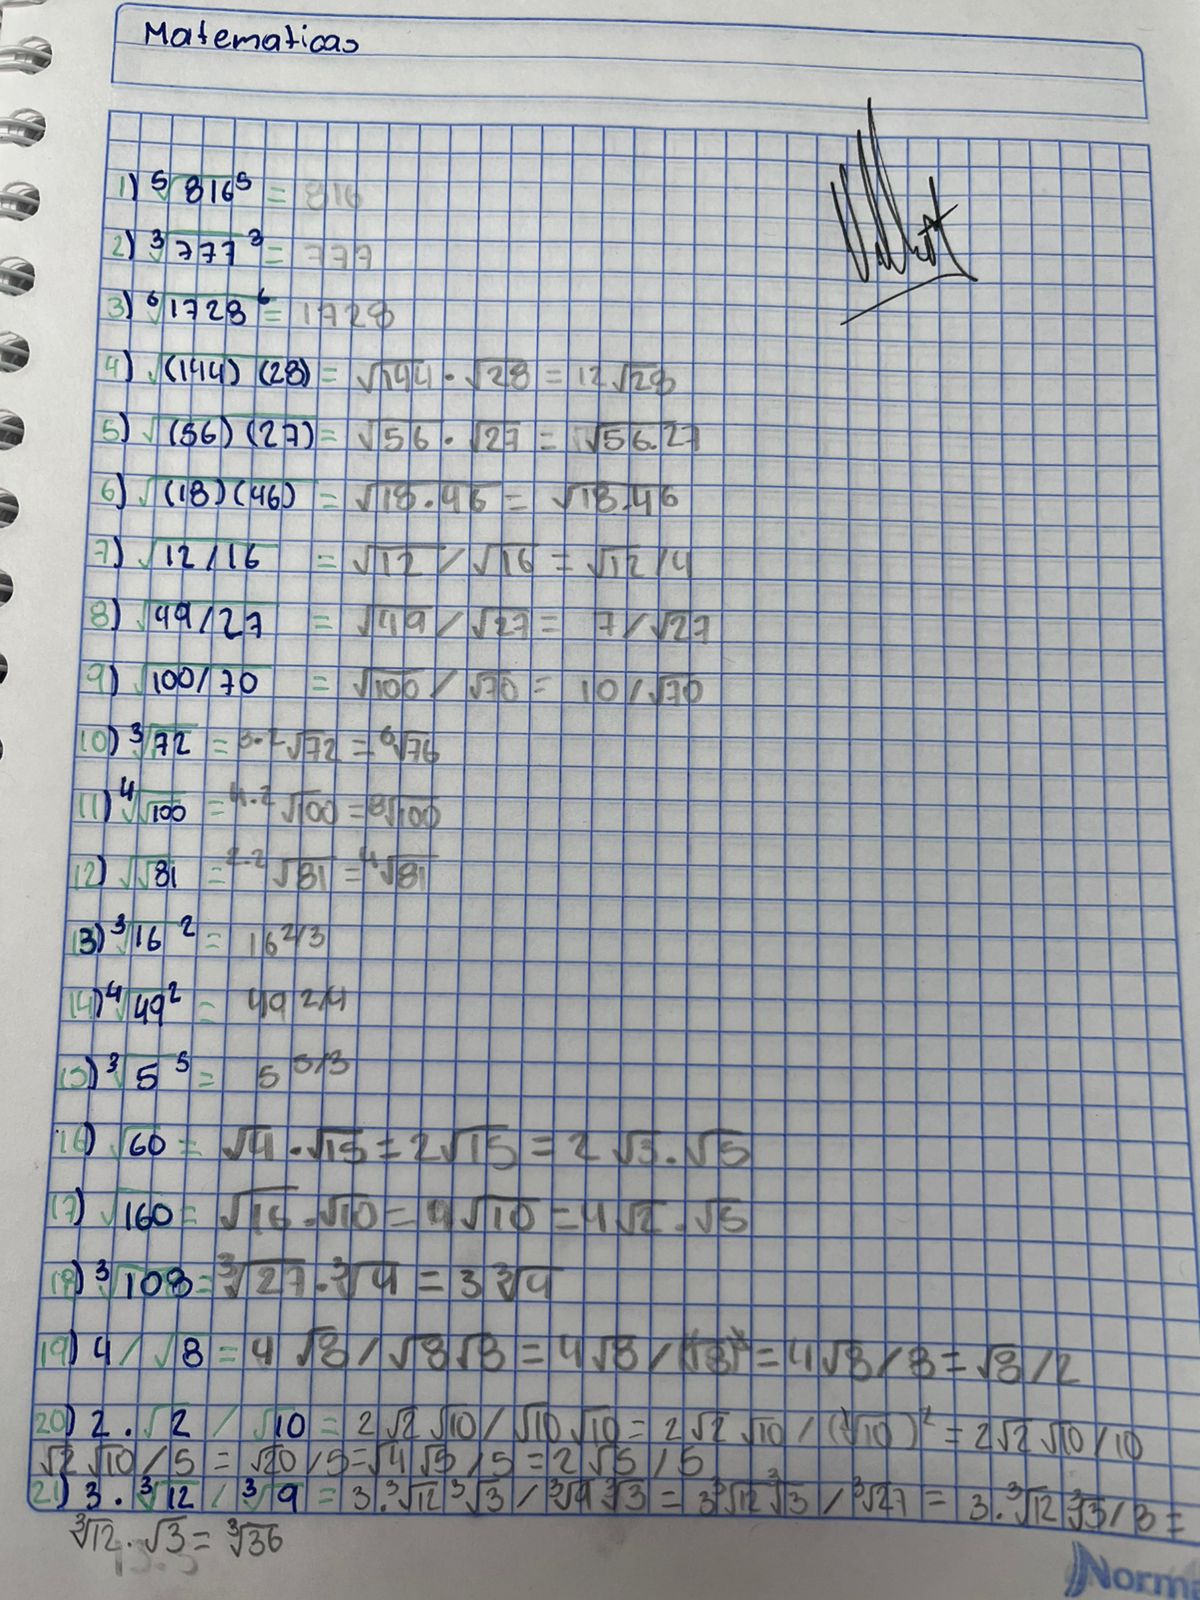 Matematicas
1) ⁵√816⁵ = 816
2) ³√777³ = 777
3) ⁶√1728⁶ = 1728
4) √(144) (28) = √144 · √28 = 12√28
5) √(56) (27) = √56 · √27 = √56.27
6) √(18)(46) = √18.46 = √18.46
7) √12/16 = √12 / √16 = √12/4
8) √49/27 = √49 / √27 = 7/√27
9) √100/70 = √100 / √70 = 10/√70
10) ³√√72 = ³·²√72 = ⁶√76
11) ⁴√√100 = ⁴·²√100 = ⁸√100
12) √√81 = ²·²√81 = ⁴√81
13) ³√16² = 16^2/3
14) ⁴√49² = 49^2/4
15) ³√5⁵ = 5^5/3
16) √60 = √4 · √15 = 2√15 = 2√3 · √5
17) √160 = √16 · √10 = 4√10 = 4√2 · √5
18) ³√108 = ³√27 · ³√4 = 3³√4
19) 4/√8 = 4√8/√8√8 = 4√8/(√8)² = 4√8/8 = √8/2
20) 2·√2 / √10 = 2√2√10/√10√10 = 2√2√10/(√10)² = 2√2√10/10
√2√10/5 = √20/5 = √4√5/5 = 2√5/5
21) 3·³√12 / ³√9 = 3·³√12³√3/³√9³√3 = 3³√12³√3/³√27 = 3·³√12³√3/3 =
³√12·√3 = ³√36
Norma